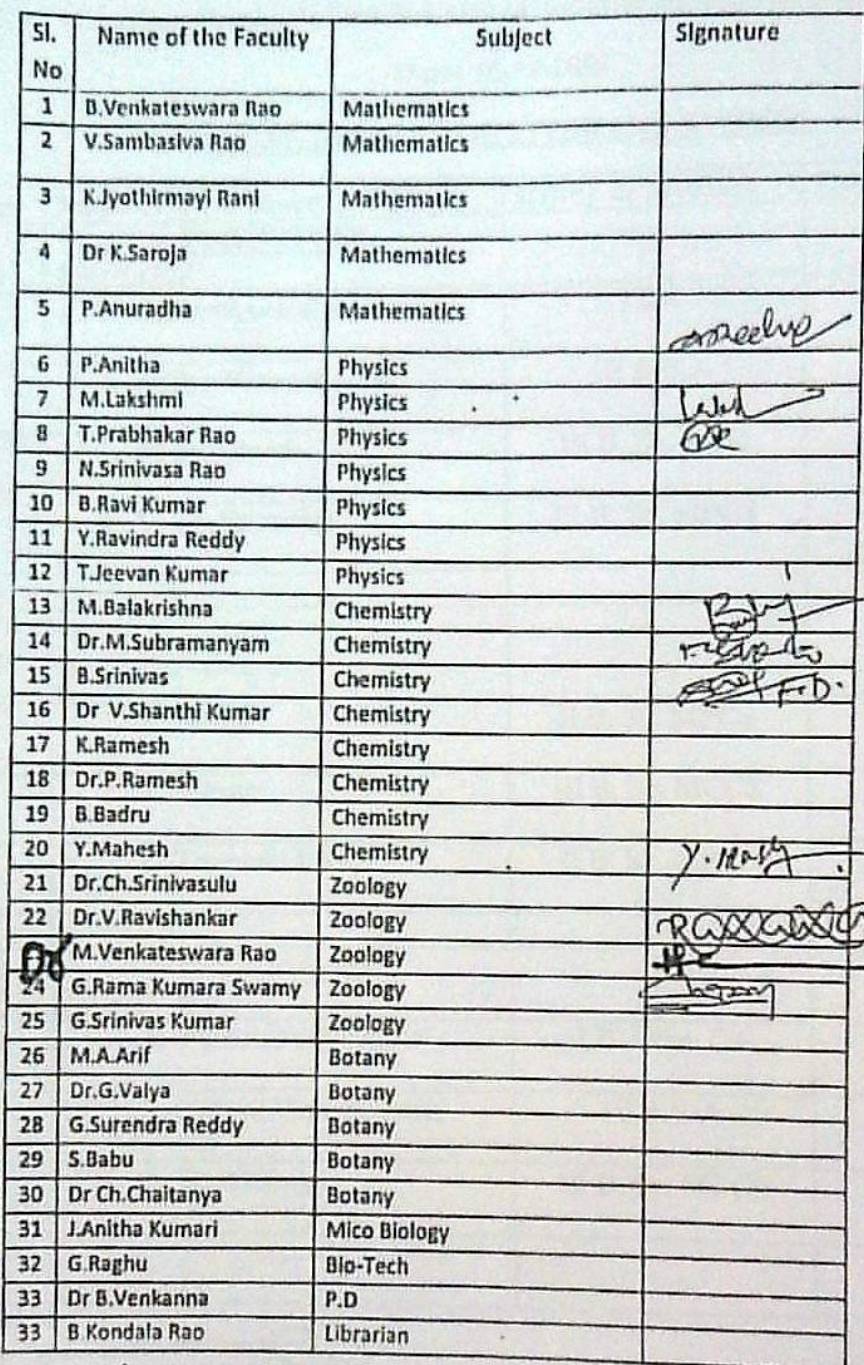 Sl. No Name of the Faculty Subject Signature
1 B.Venkateswara Rao Mathematics
2 V.Sambasiva Rao Mathematics
3 K.Jyothirmayi Rani Mathematics
4 Dr K.Saroja Mathematics
5 P.Anuradha Mathematics
6 P.Anitha Physics
7 M.Lakshmi Physics
8 T.Prabhakar Rao Physics
9 N.Srinivasa Rao Physics
10 B.Ravi Kumar Physics
11 Y.Ravindra Reddy Physics
12 T.Jeevan Kumar Physics
13 M.Balakrishna Chemistry
14 Dr.M.Subramanyam Chemistry
15 B.Srinivas Chemistry F.D.
16 Dr V.Shanthi Kumar Chemistry
17 K.Ramesh Chemistry
18 Dr.P.Ramesh Chemistry
19 B.Badru Chemistry
20 Y.Mahesh Chemistry
21 Dr.Ch.Srinivasulu Zoology
22 Dr.V.Ravishankar Zoology
M.Venkateswara Rao Zoology
24 G.Rama Kumara Swamy Zoology
25 G.Srinivas Kumar Zoology
26 M.A.Arif Botany
27 Dr.G.Valya Botany
28 G.Surendra Reddy Botany
29 S.Babu Botany
30 Dr Ch.Chaitanya Botany
31 J.Anitha Kumari Mico Biology
32 G.Raghu Bio-Tech
33 Dr B.Venkanna P.D
33 B.Kondala Rao Librarian